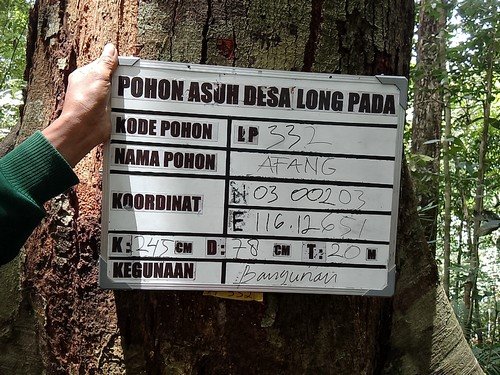 POHON ASUH DESA LONG PADA
KODE POHON LP 332
NAMA POHON AFANG
KOORDINAT N 03 00203
E 116.12651
K: 245 CM D: 78 CM T: 20 M
KEGUNAAN Bangunan
332